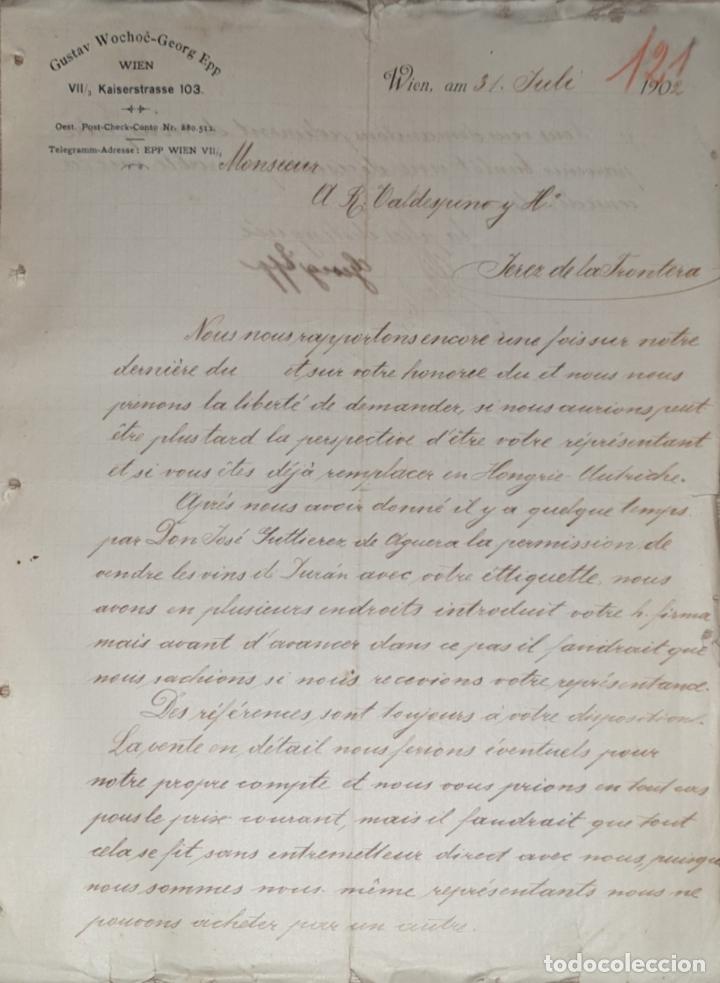 Gustav Wochoč-Georg Epp
WIEN
VII/3 Kaiserstrasse 103.
Oest. Post-Check-Conto Nr. 880.512.
Telegramm-Adresse: EPP WIEN VII/3
121
Wien, am 31. Juli 1902
Monsieur
A. R. Valdespino y Hº
Jerez de la Frontera
Georg Epp
Nous nous rapportons encore une fois sur notre
dernière du et sur votre honorée du et nous nous
prenons la liberté de demander, si nous aurions peut
être plus tard la perspective d'être votre répresentant
et si vous êtes déjà remplacer en Hongrie-Autriche.
Après nous avoir donné il y a quelque temps
par Don José Guttierez de Aguera la permission de
vendre les vins de Durán avec votre éttiquette, nous
avons en plusieurs endroits introduit votre h. firma
mais avant d'avancer dans ce pas il faudrait que
nous sachions, si nous recevions votre représentance.
Des références sont toujours à votre disposition.
La vente en détail nous ferions éventuels pour
notre propre compte et nous vous prions en tout cas
pous le prix courant, mais il faudrait que tout
cela se fit sans entremetteur direct avec nous, puisque
nous sommes nous-même représentants nous ne
pouvons acheter par un autre.
todocoleccion
todocoleccion.net